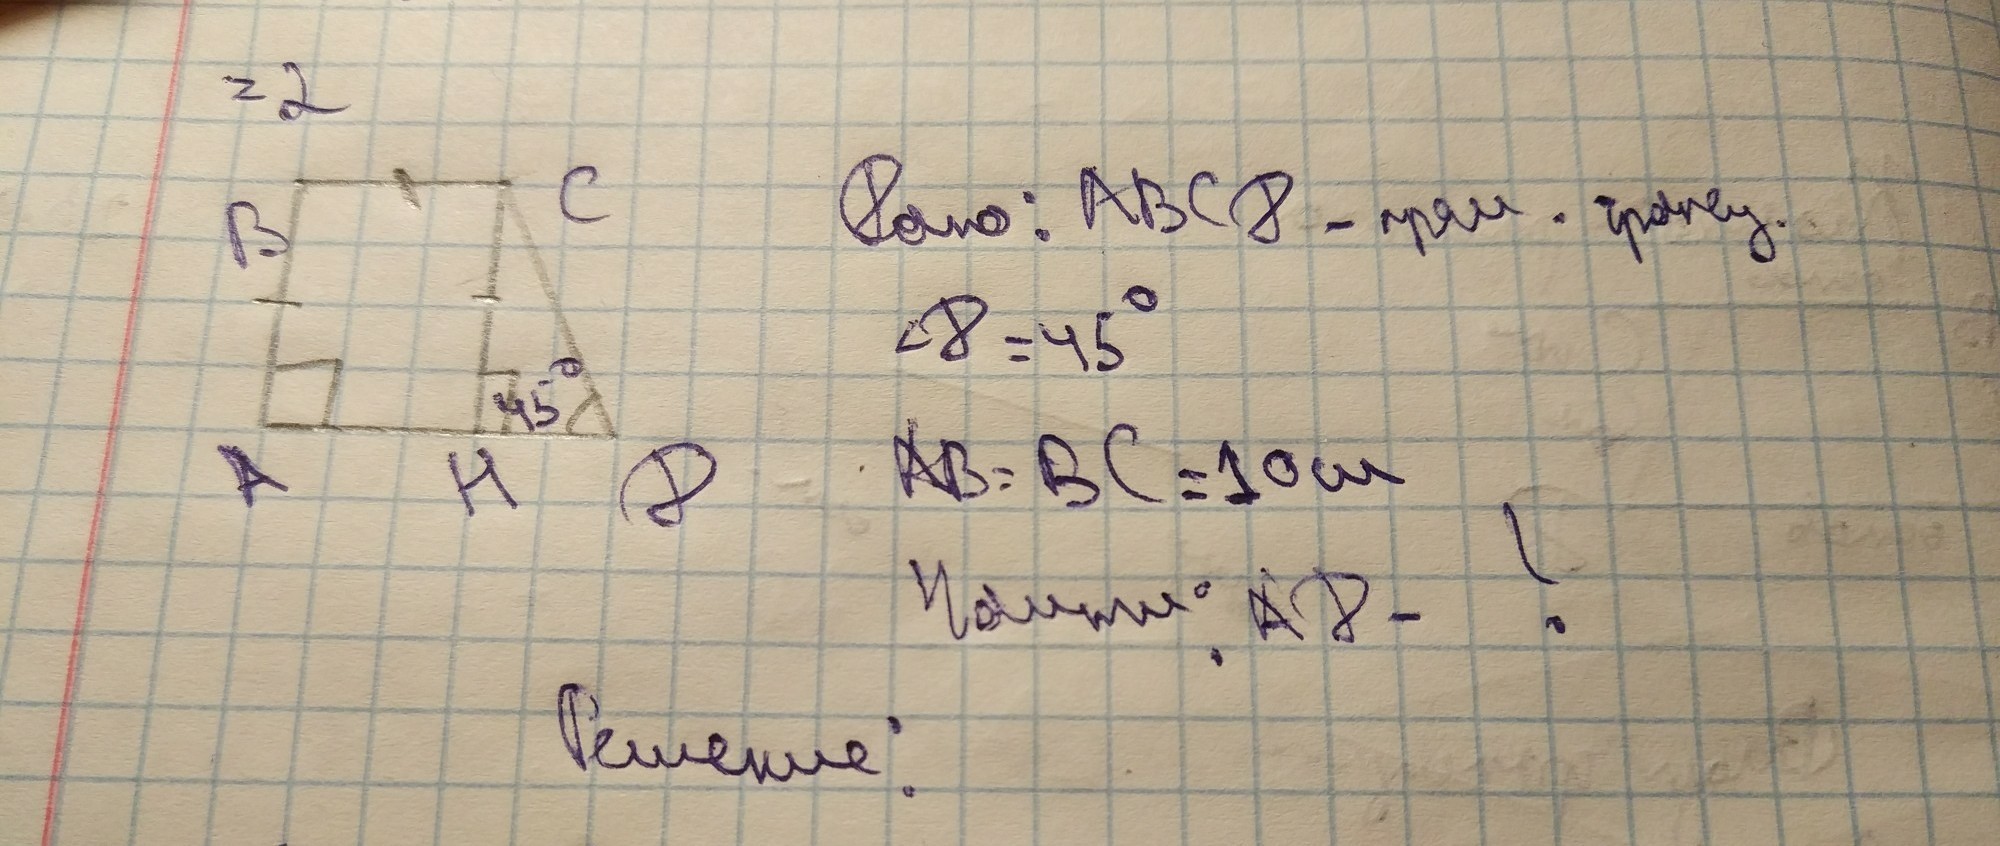 =2
B C
45°
A H D
Дано: ABCD - прям. трапец.
∠D = 45°
AB = BC = 10 см
Найти: AD - ?
Решение: